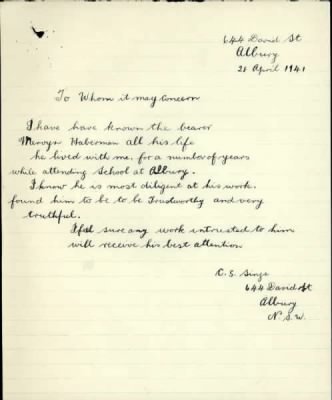 644 David St
Albury
28 April 1941
To Whom it may Concern
I have have known the bearer
Mervyn Haberman all his life
he lived with me, for a number of years
while attending School at Albury.
I know he is most diligent at his work.
found him to be to be Trustworthy and very
truthful.
I feel sure any work intrusted to him
will receive his best attention
C. S.
644 David St
Albury
N.S.W.